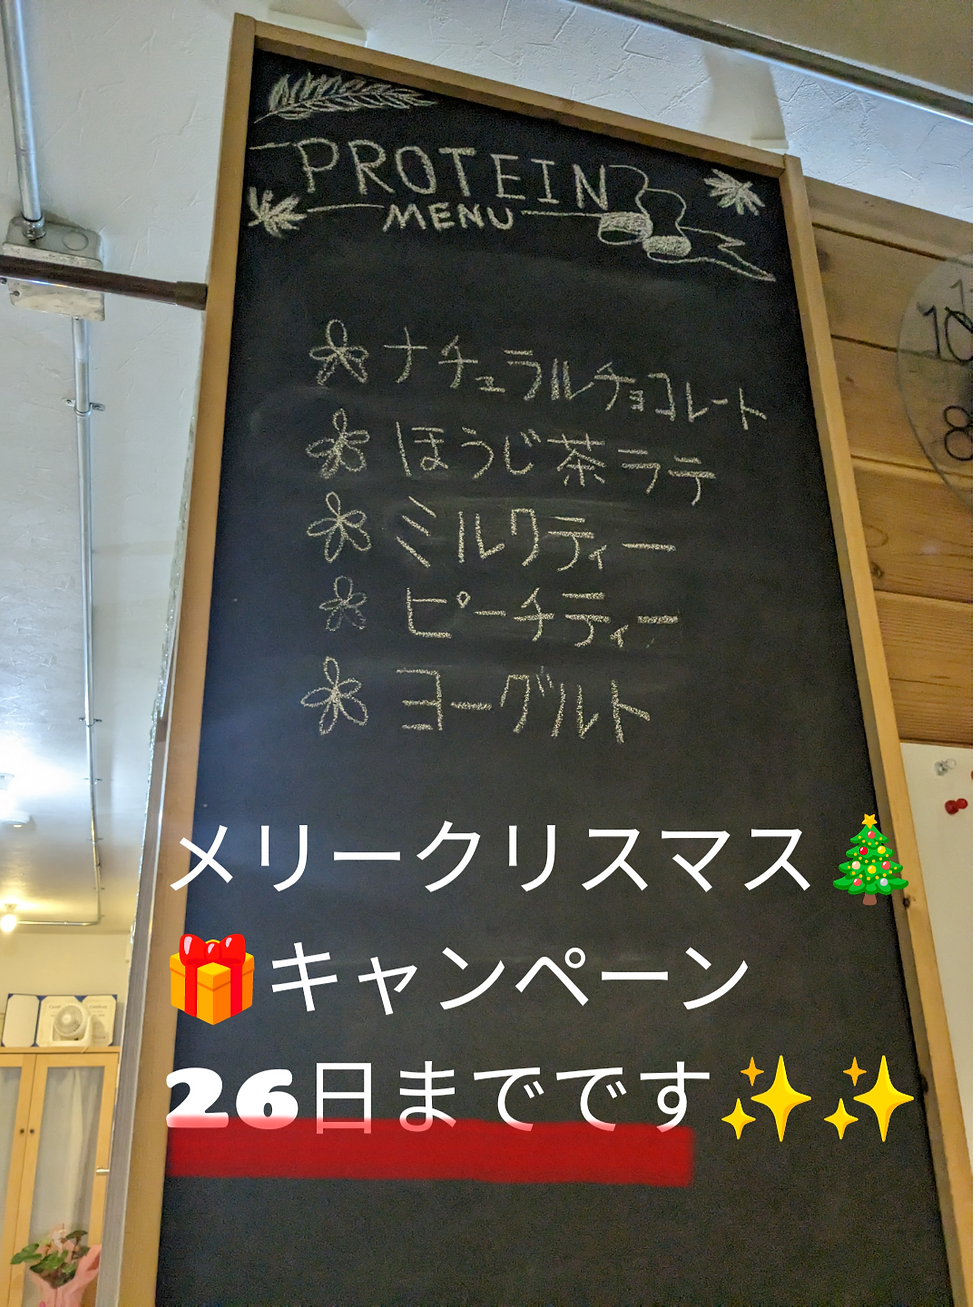 PROTEIN
MENU
ナチュラルチョコレート
ほうじ茶ラテ
ミルクティー
ピーチティー
ヨーグルト
メリークリスマス🎄
🎁キャンペーン
26日までです✨✨
10
8